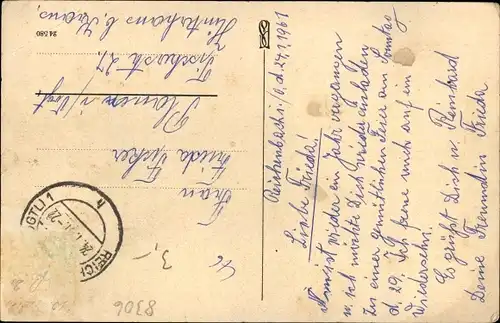 Reichenbach i/V. d. 24.1.1961
Liebe Frieda!
Nun ist wieder ein Jahr vergangen
u. ich möchte Dich wieder einladen
zu einer gemütlichen Feier am Sonntag
d. 29. Ich freue mich auf ein
Wiedersehn.
Es grüßt Dich u. Reinhard
Deine Freundin Frieda
Frau
Frieda
Plauen i/Vogt
27
Hinterhaus b. Kraus,
24580
REICH
GTL) 1
3,-
8306